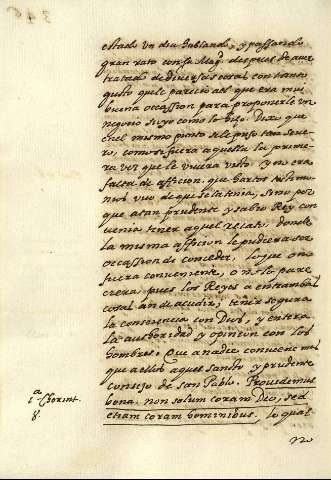 estado un dia hablando, y passando
gran rato con su Magd despues de aver
tratado de diversas cosas con tanto
gusto que le pareció al que era mui
buena occassion para proponerle un
negocio suyo como lo hizo. Dixo que
en el mismo punto se le puso tan seve-
ro, como si fuera aquella la prime-
ra vez que le viviera visto. y no era
falta de afficion, que hartos testimo-
nios vivo de que se la tenia, sino por
que a tan prudente y sabio Rey con
venia tener aquel recato, donde
la misma afficion le pudiera ser
occassion de conceder, lo que no
fuera conveniente, o no lo pare
ciera, pues los Reyes a entrambas
cosas an de acudir, tener segura
la consciencia con Dios, y entera
la authoridad y opinion con los
hombres: Que a nadie conviene mas
que a ellos aquel sancto y prudente
consejo de san Pablo. Providemus
bona non solum coram Deo, sed
etiam coram hominibus. lo qual
no
a
1 Chorint.
8.